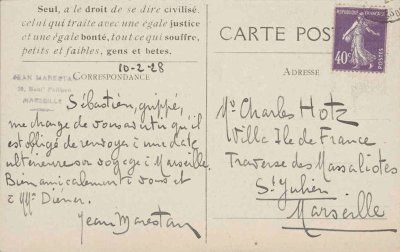 Seul, a le droit de se dire civilisé,
celui qui traite avec une égale justice
et une égale bonté, tout ce qui souffre,
petits et faibles, gens et betes.
CORRESPONDANCE
10-2-28
JEAN MARESTAN
MARSEILLE
Sébastien, grippé,
me charge de vous avertir qu'il
est obligé de renvoyer à une date
ultérieure son voyage à Marseille.
Bien amicalement à vous et
à Mme
Jean Marestan
CARTE POST
ADRESSE
40c
Mr Charles Hotz
Villa Ile de France
Traverse des Massaliotes
St Julien
Marseille